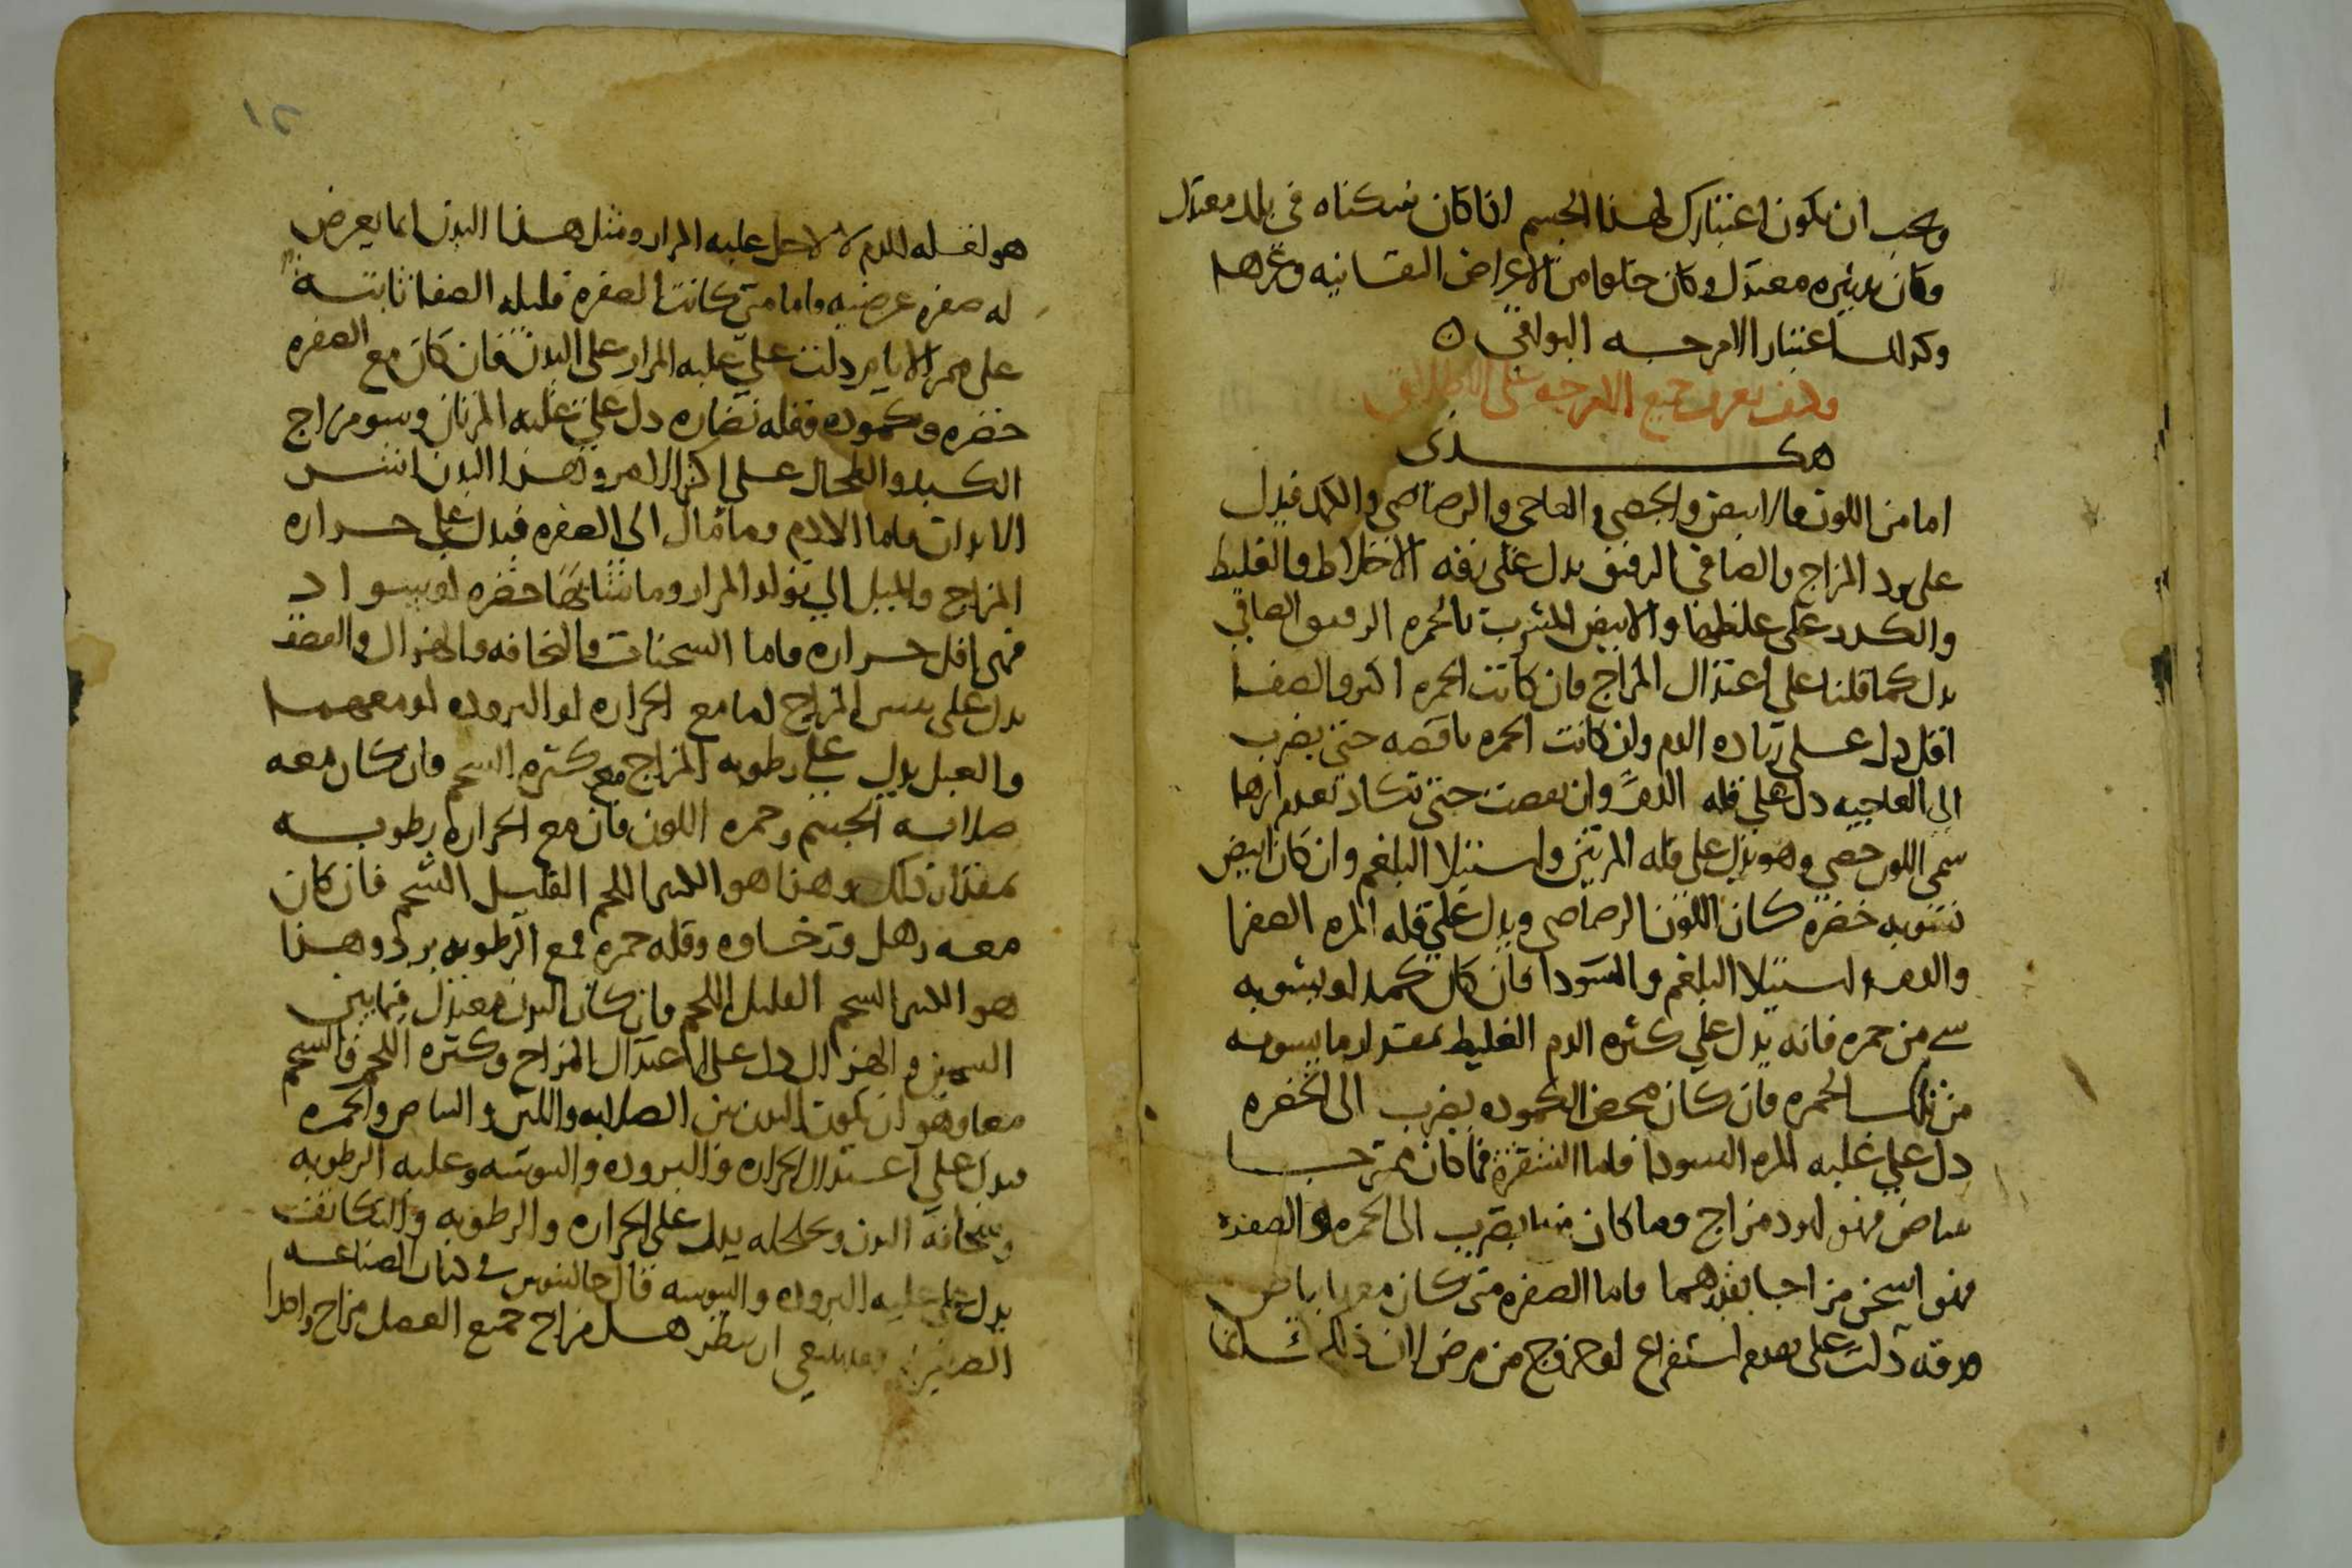 ويجب ان يكون اعتبارك لهذا الجسم اذا كان مسكناه في بلد معتدل
وكان تدبيره معتدل وكان خلوا من الاعراض النفسانيه وغيرها
وكذلك اعتبار الامزجه البواقي ه
وكيف يعرف جميع الامزجه على الاطلاق
هكذى
اما من اللون فالابيض والجصي والعاجي والرصاصي والكمد فيدل
على برد المزاج والصافي الرقيق يدل على رقه الاخلاط والغليظ
والكدر على غلظها والابيض المشرب بالحمره الرقيق الصافي
يدل كما قلنا على اعتدال المزاج فان كانت الحمره اكثر والصفا
اقل دل على زياده الدم وان كانت الحمره ناقصه حتى يضرب
الى العاجيه دل على قله الدم وان نقصت حتى تكاد تعدم اثرها
سمى اللون جصي وهو يدل على قله المرتين واستيلا البلغم وان كان ابيض
تشوبه خضره كان اللون الرصاصي ويدل على قله المره الصفرا
والدم واستيلا البلغم والسودا فان كان كمد لو يشوبه
شي من حمره فانه يدل على كثره الدم الغليظ بمقدار ما يشوبه
من تلك الحمره فان كان محض الكموده يضرب الى الخضره
دل على غلبه المره السودا فاما الشقره فما كان ممتزجا
بياض فهو ابرد مزاج وما كان منها يضرب الى الحمره والصفره
فهو اسخن مزاجا بقدرهما فاما الصفره متى كان معها بياض
ورقه دلت على تقدم استفراغ او خروج من مرض لان ذلك
هو لقله الدم لا لاجل غلبه المرار ومثل هذا البدن انما يعرض
له صفره عرضيه واما متى كانت الصفره قليله الصفا ثابته
على ممر الايام دلت على غلبه المرار على البدن فان كان مع الصفره
خضره وكموده وقله نضاره دل على غلبه المرتان وسو مزاج
الكبد والطحال على اكثر الامر وهذا البدن ايبس
الابدان واما الادم وما مال الى الصفره فيدل على حراره
المزاج والميل الى تولد المرار وما شابها خضره او سواد
فهي اقل حراره واما السحنات فالنحافه والهزال والقصف
يدل على يبس المزاج اما مع الحراره او البروده او معهما
والعبل يدل على رطوبه المزاج مع كثره الشحم فان كان معه
صلابه الجسم وحمره اللون فان مع الحراره رطوبه
بمقدار ذلك وهذا هو الكثير اللحم القليل الشحم فان كان
معه رهل ورخاوه وقله حمره فمع الرطوبه برد وهذا
هو الكثير الشحم القليل اللحم فان كان البدن معتدل فيما بين
السمن والهزال دل على اعتدال المزاج وكثره اللحم والشحم
معا وهو ان يكون البدن بين الصلابه واللين والبياض والحمره
فيدل على اعتدال الحراره والبروده واليبوسه وغلبه الرطوبه
وسخافه البدن وتخلخله يدل على الحراره والرطوبه والتكاثف
يدل على غلبه البروده واليبوسه قال جالينوس في كتاب الصناعه
الصغيره ينبغي ان ينظر هل مزاج جميع العضل مزاج واحدا